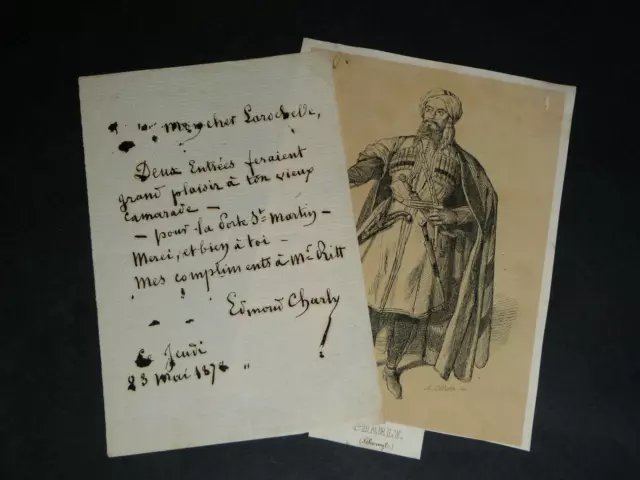 Mon cher Larochelle,
Deux Entrées feraient
grand plaisir à ton vieux
camarade -
- pour la Porte St Martin -
Merci, et bien à toi -
Mes compliments à Mr Ritt
Edmond Charly
Ce Jeudi
23 mai 1878 "